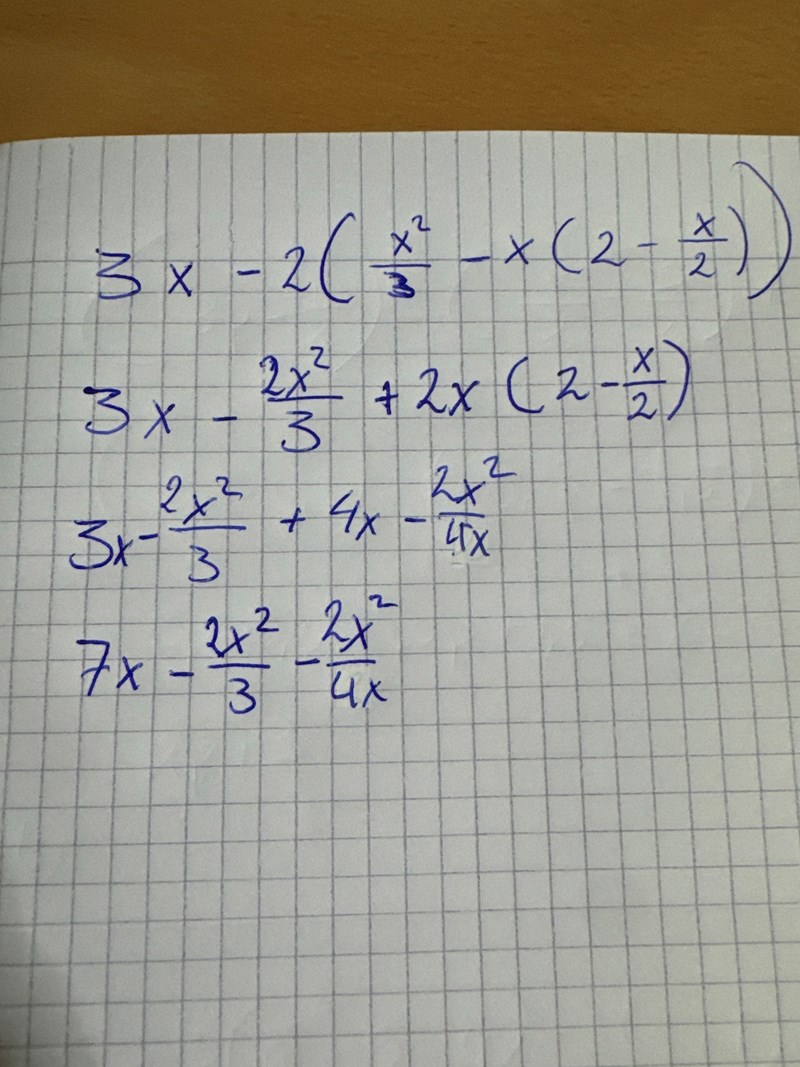 3x - 2(x²/3 - x(2 - x/2))
3x - 2x²/3 + 2x(2 - x/2)
3x - 2x²/3 + 4x - 2x²/4x
7x - 2x²/3 - 2x²/4x